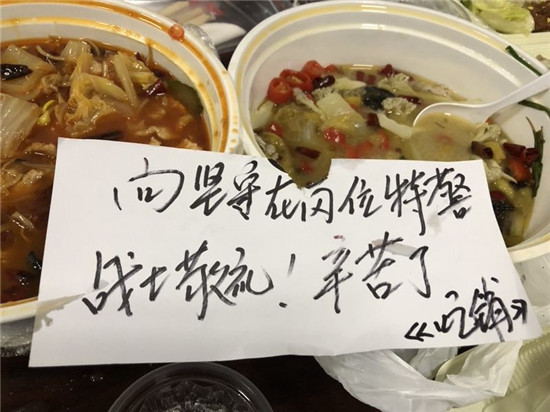 向坚守在岗位特警
战士敬礼！辛苦了
《吃铺》